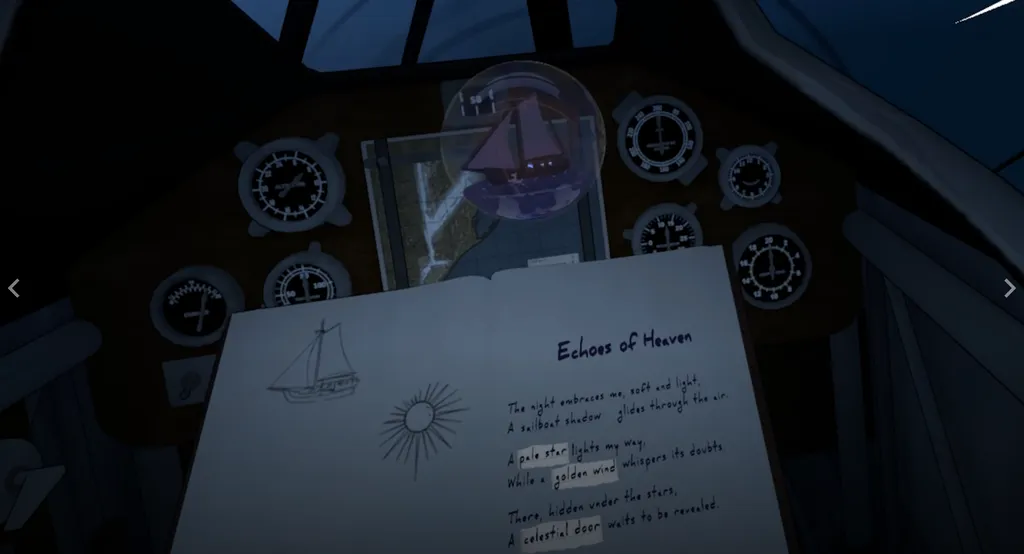 Echoes of Heaven
The night embraces me, soft and light,
A sailboat shadow glides through the air.
A pale star lights my way,
While a golden wind whispers its doubts
There, hidden under the stars,
A celestial door waits to be revealed.